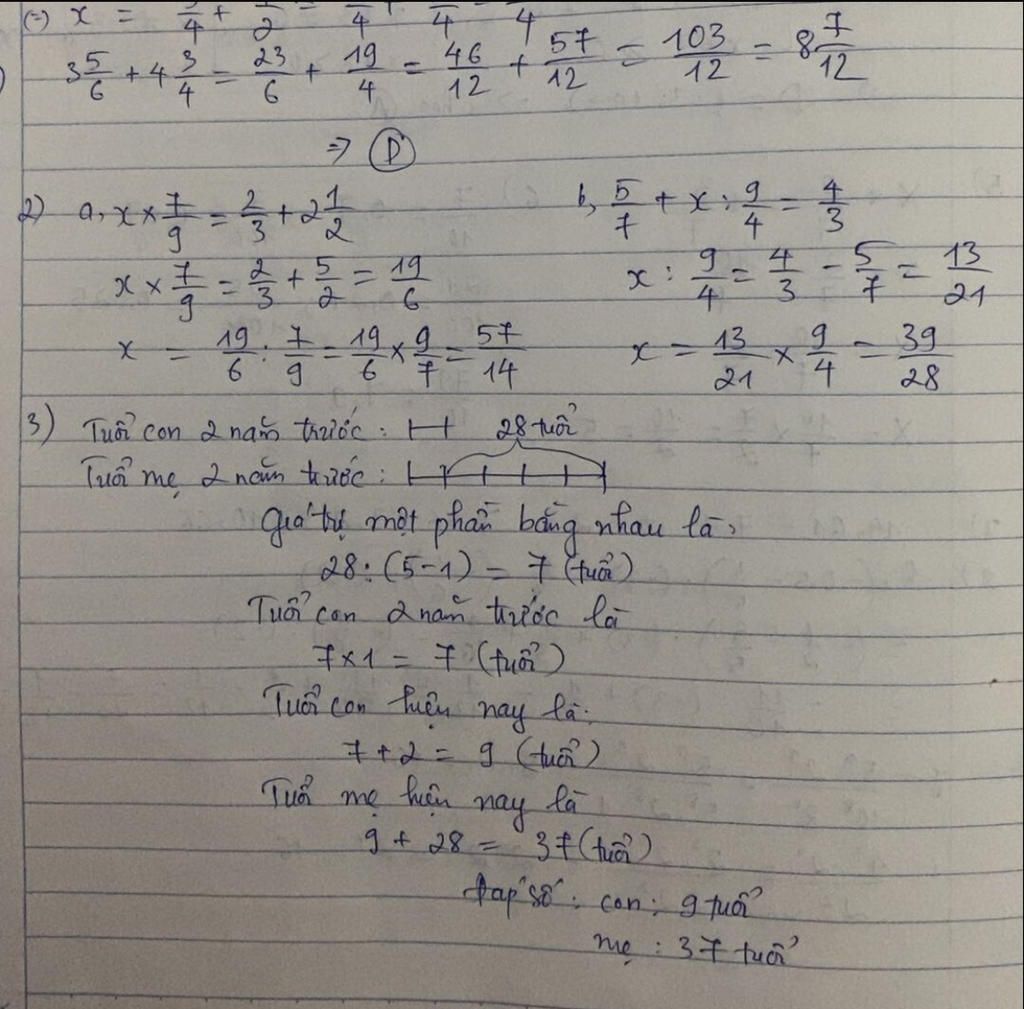 (=) x = 3/4 + /2 = /4 + /4 = /4
3 5/6 + 4 3/4 = 23/6 + 19/4 = 46/12 + 57/12 = 103/12 = 8 7/12
=> D
2) a, x × 7/9 = 2/3 + 2 1/2 b, 5/7 + x : 9/4 = 4/3
x × 7/9 = 2/3 + 5/2 = 19/6 x : 9/4 = 4/3 - 5/7 = 13/21
x = 19/6 : 7/9 = 19/6 × 9/7 = 57/14 x = 13/21 × 9/4 = 39/28
3) Tuổi con 2 năm trước : 28 tuổi
Tuổi mẹ 2 năm trước :
Giá trị một phần bằng nhau là :
28 : (5-1) = 7 (tuổi)
Tuổi con 2 năm trước là
7×1 = 7 (tuổi)
Tuổi con hiện nay là :
7 + 2 = 9 (tuổi)
Tuổi mẹ hiện nay là
9 + 28 = 37 (tuổi)
Đáp số : con : 9 tuổi
mẹ : 37 tuổi